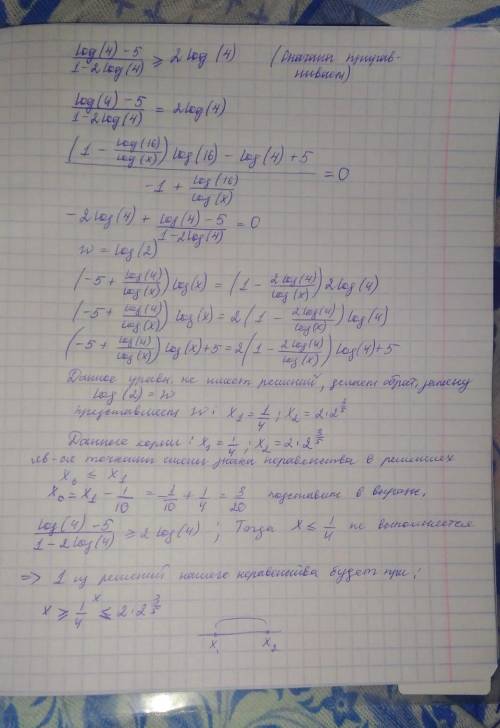 log(4) - 5 / 1 - 2log(4) ⩾ 2log(4) (Сначала приравниваем)
log(4) - 5 / 1 - 2log(4) = 2log(4)
(1 - log(16)/log(x)) log(16) - log(4) + 5 / -1 + log(16)/log(x) = 0
- 2log(4) + log(4) - 5 / 1 - 2log(4) = 0
w = log(2)
(-5 + log(4)/log(x)) log(x) = (1 - 2log(4)/log(x)) 2log(4)
(-5 + log(4)/log(x)) log(x) = 2(1 - 2log(4)/log(x)) log(4)
(-5 + log(4)/log(x)) log(x) + 5 = 2(1 - 2log(4)/log(x)) log(4) + 5
Данное уравн. не имеет решений, делаем обрат. замену
log(2) = w
представляем w: x₁ = 1/4; x₂ = 2·2^
Данные корни: x₁ = 1/4; x₂ = 2·2^
яв-ся точками смены знака неравенства в решениях
x₀ ≤ x₁
x₀ = x₁ - 1/10 = -1/10 + 1/4 = 3/20 подставим в выраж.
log(4) - 5 / 1 - 2log(4) ⩾ 2log(4); Тогда x ≤ 1/4 не выполняется
=> 1 из решений нашего неравенства будет при:
x ⩾ 1/4 x ≤ 2·2^
x₁ x₂